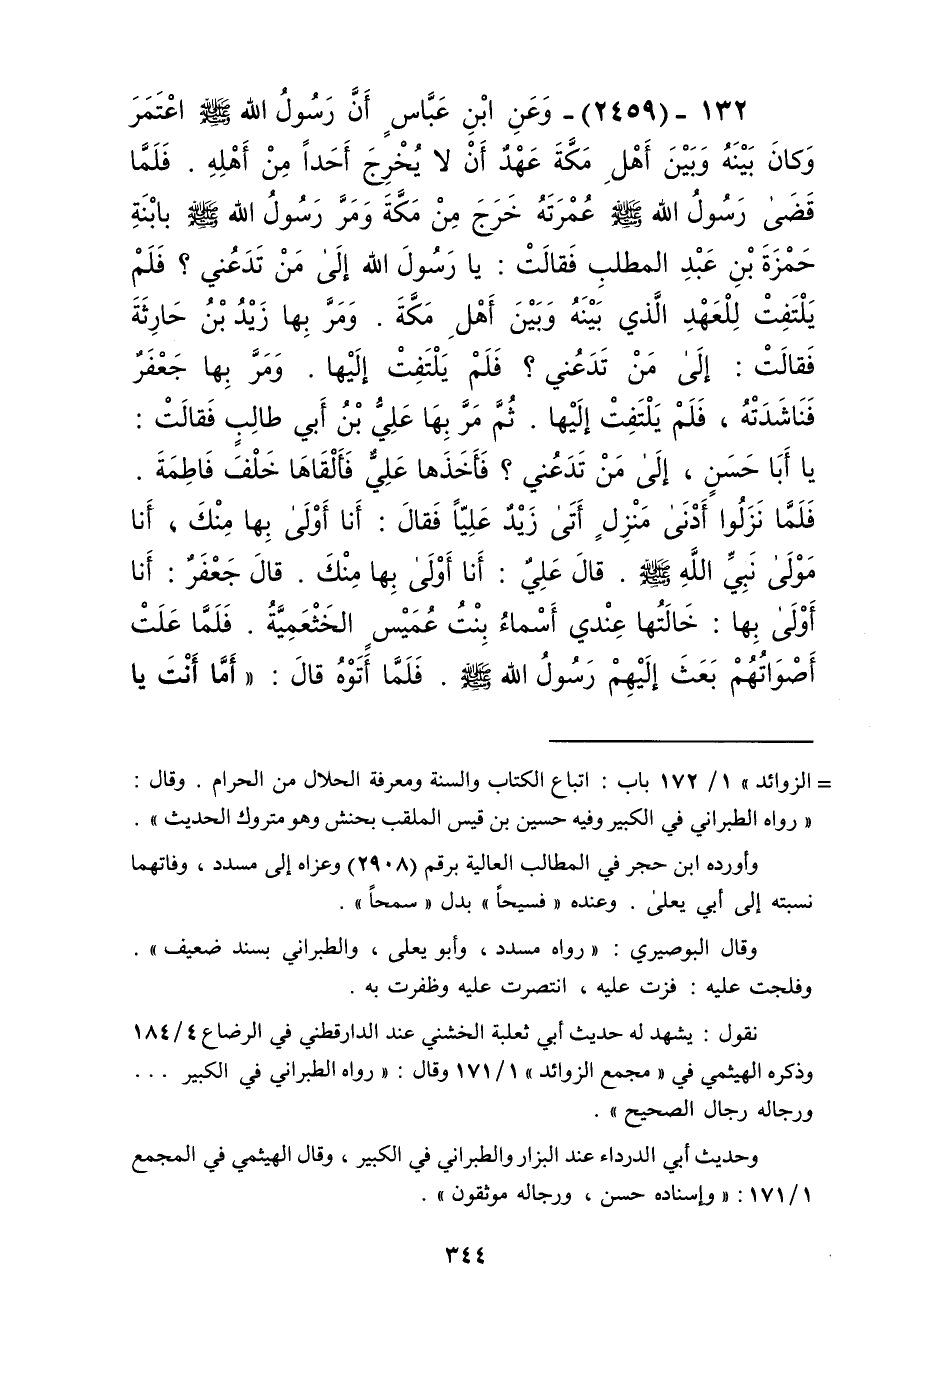 ١٣٢ - (٢٤٥٩) - وَعَنِ ابْنِ عَبَّاسٍ أَنَّ رَسُولُ الله ﷺ اعْتَمَرَ
وَكانَ بَيْنَهُ وَبَيْنَ أَهْلِ مَكَّةَ عَهْدٌ أَنْ لا يُخْرِجَ أَحَداً مِنْ أَهْلِهِ . فَلَمَّا
قَضَىٰ رَسُولُ الله ﷺ عُمْرَتَهُ خَرَجَ مِنْ مَكَّةَ وَمَرَّ رَسُولُ الله ﷺ بابْنَةِ
حَمْزَةَ بْنِ عَبْدِ المطلبِ فَقالَتْ : يا رَسُولَ الله إلَىٰ مَنْ تَدَعُني ؟ فَلَمْ
يَلْتَفِتْ لِلْعَهْدِ الَّذي بَيْنَهُ وَبَيْنَ أَهْلِ مَكَّةَ . وَمَرَّ بِها زَيْدُ بْنُ حَارِثَةَ
فَقالَتْ : إلَىٰ مَنْ تَدَعُني ؟ فَلَمْ يَلْتَفِتْ إلَيْها . وَمَرَّ بِها جَعْفَرٌ
فَنَاشَدَتْهُ ، فَلَمْ يَلْتَفِتْ إلَيْها . ثُمَّ مَرَّ بِهَا عَلِيُّ بْنُ أبي طالِبٍ فَقالَتْ :
يا أَبَا حَسَنٍ ، إلَىٰ مَنْ تَدَعُني ؟ فَأَخَذَها عَلِيٌّ فَأَلْقَاهَا خَلْفَ فَاطِمَةَ .
فَلَمَّا نَزَلُوا أَدْنَىٰ مَنْزِلٍ أَتَىٰ زَيْدٌ عَلِيّاً فَقالَ : أنا أَوْلَىٰ بِها مِنْكَ ، أنا
مَوْلَىٰ نَبِيِّ اللَّهِ ﷺ . قالَ عَلِيٌ : أنا أَوْلَىٰ بِها مِنْكَ . قالَ جَعْفَرٌ : أنا
أَوْلَىٰ بِها : خَالَتُها عِنْدي أَسْماءُ بِنْتُ عُمَيْسٍ الخَثْعَمِيَّةُ . فَلَمَّا عَلَتْ
أَصْوَاتُهُمْ بَعَثَ إلَيْهِمْ رَسُولُ الله ﷺ . فَلَمَّا أَتَوْهُ قالَ : « أَمَّا أَنْتَ يا
= الزوائد » ١/ ١٧٢ باب : اتباع الكتاب والسنة ومعرفة الحلال من الحرام . وقال :
« رواه الطبراني في الكبير وفيه حسين بن قيس الملقب بحنش وهو متروك الحديث » .
وأورده ابن حجر في المطالب العالية برقم (٢٩٠٨) وعزاه إلى مسدد ، وفاتهما
نسبته إلى أبي يعلىٰ . وعنده « فسيحاً » بدل « سمحاً » .
وقال البوصيري : « رواه مسدد ، وأبو يعلى ، والطبراني بسند ضعيف » .
وفلجت عليه : فزت عليه ، انتصرت عليه وظفرت به .
نقول : يشهد له حديث أبي ثعلبة الخشني عند الدارقطني في الرضاع ١٨٤/٤
وذكره الهيثمي في « مجمع الزوائد » ١٧١/١ وقال : « رواه الطبراني في الكبير ...
ورجاله رجال الصحيح » .
وحديث أبي الدرداء عند البزار والطبراني في الكبير ، وقال الهيثمي في المجمع
١٧١/١ : « وإسناده حسن ، ورجاله موثقون » .
٣٤٤